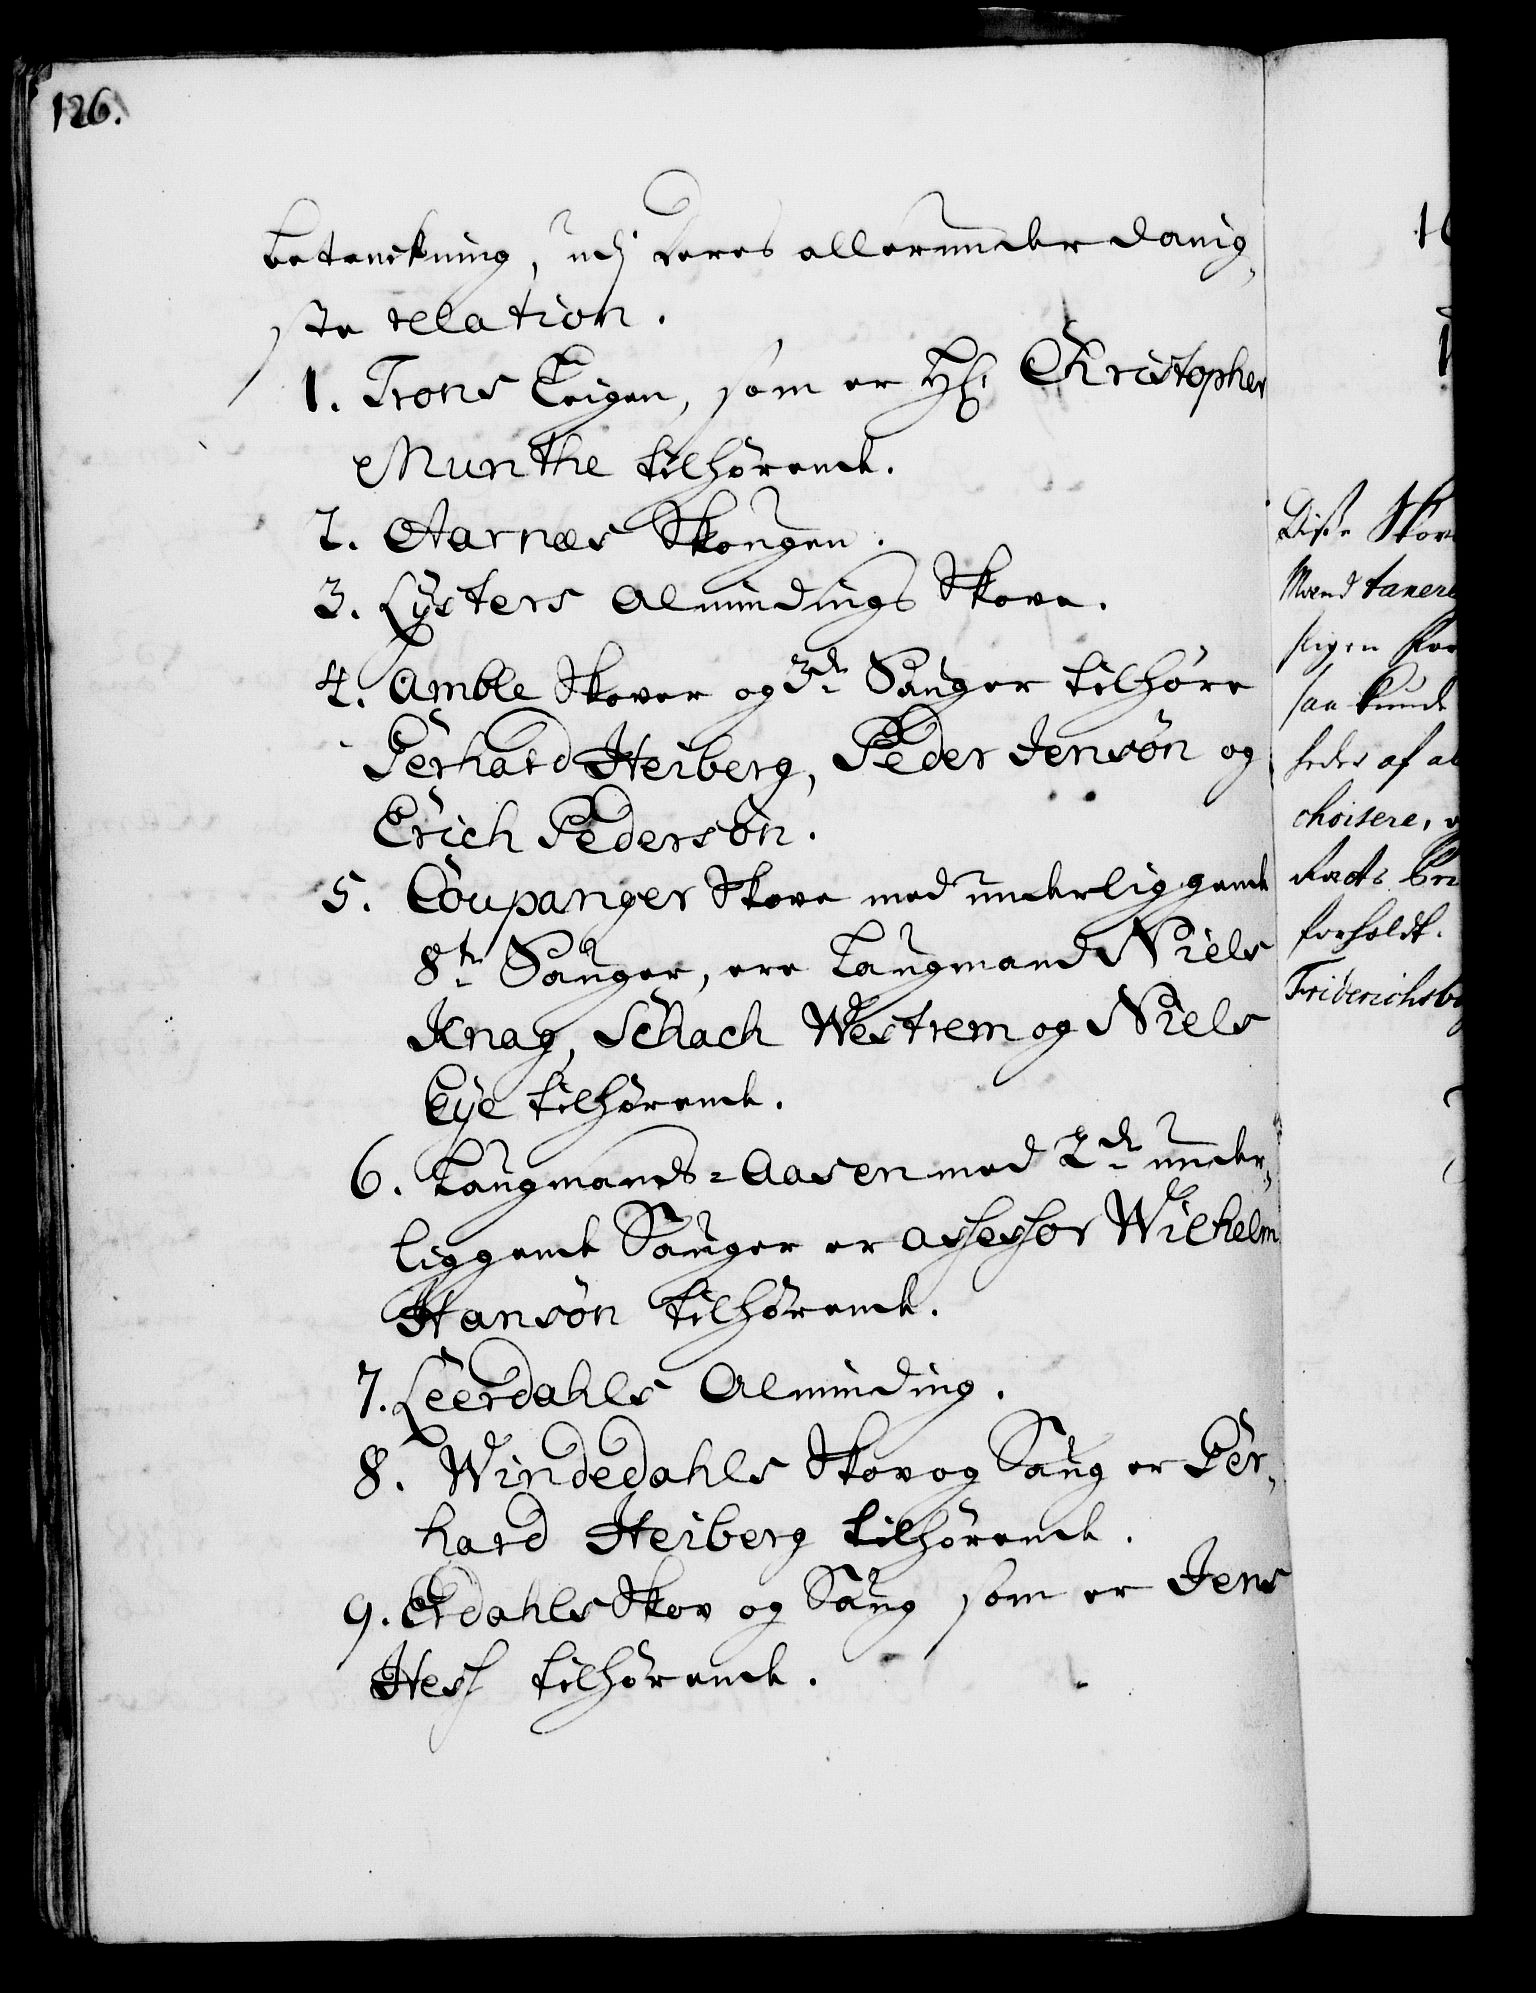 126.
betenckning, udj deres allerunderdanig,
ste relation.
1. Trons Teigen, som er Hr. Christopher
Munthe tilhørende.
2. Aarnæs Skougen.
3. Lÿsters Almindings Skove.
4. Amble Skover og 3de Sauger tilhøre
Gerhard Heiberg, Peder Jensøn og
Erich Pedersøn.
5. Coupanger Skove med underliggende
8te Sauger, ere Laugmand Niels
Knag, Schach Westrem og Niels
Eye tilhørende.
6. Laugmands=Aasen med 2de under,
liggende Sauger er assessor Wilhelm
Hansøn tilhørende.
7. Leerdahls Alminding.
8. Windedahls Skov og Saug er Ger,
hard Heiberg tilhørende.
9. Erdahls Skov og Saug som er Jens
Hess tilhørende.
Disse Skov
Mænd tanere
sligen For
saa kunde
heder af al
choisere,
Raads
forholdt.
Friderichsb